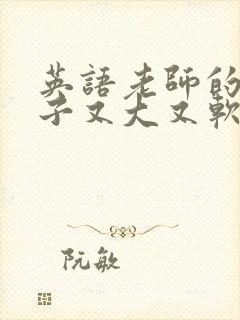 英語老師的
子又大又軟
阮敏